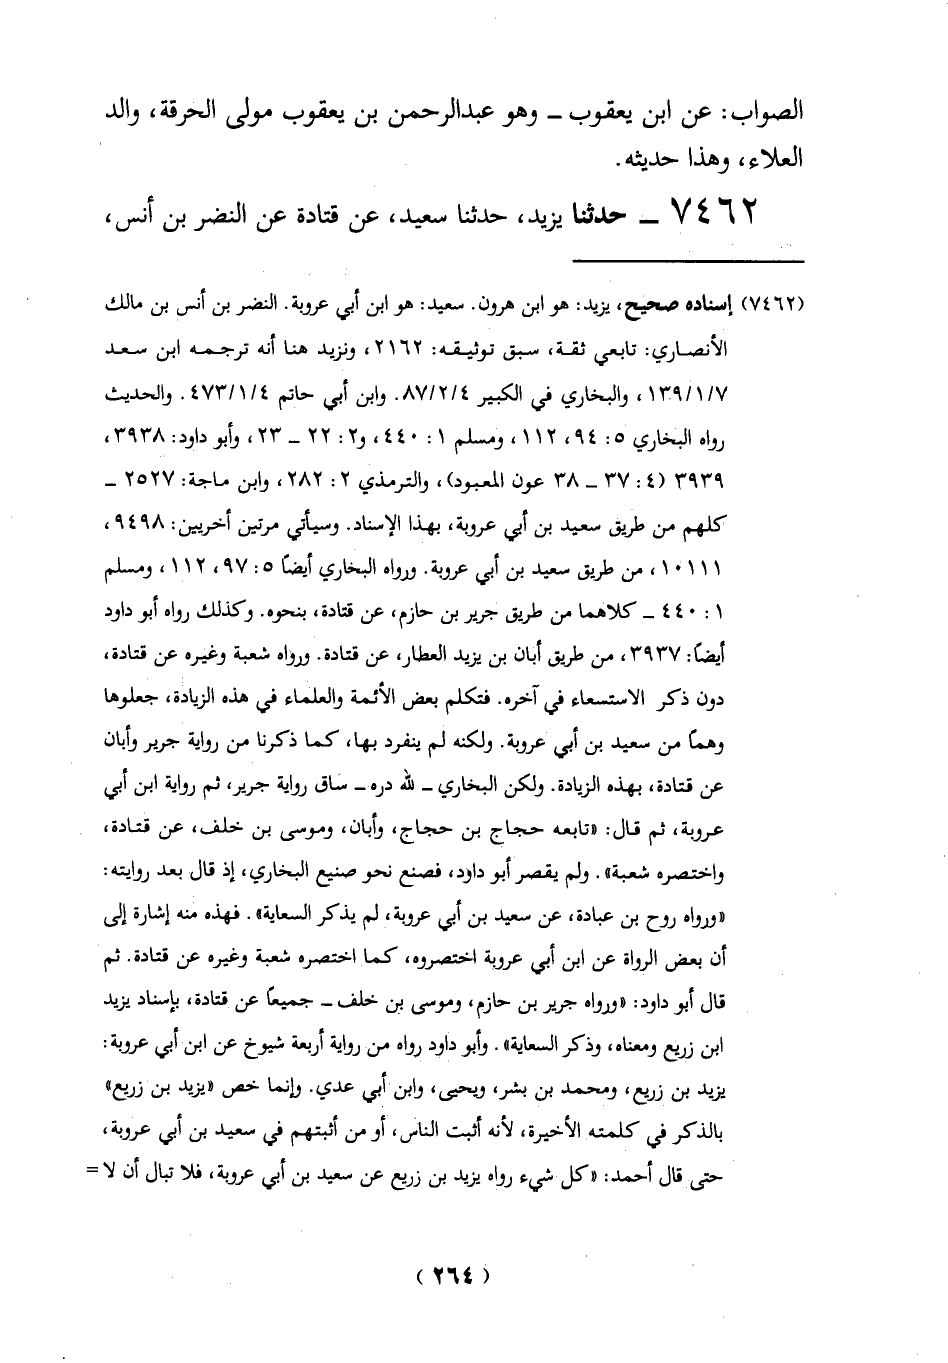 الصواب: عن ابن يعقوب ــ وهو عبدالرحمن بن يعقوب مولى الحرقة، والد
العلاء، وهذا حديثه.
٧٤٦٢ ــ حدثنا يزيد، حدثنا سعيد، عن قتادة عن النضر بن أنس،
(٧٤٦٢) إسناده صحيح، يزيد: هو ابن هرون. سعيد: هو ابن أبي عروبة. النضر بن أنس بن مالك
الأنصاري: تابعي ثقة، سبق توثيقه: ٢١٦٢، ونزيد هنا أنه ترجمه ابن سعد
١٣٩/١/٧، والبخاري في الكبير ٨٧/٢/٤. وابن أبي حاتم ٤٧٣/١/٤. والحديث
رواه البخاري ٥: ٩٤، ١١٢، ومسلم ١: ٤٤٠، و٢: ٢٢ ــ ٢٣، وأبو داود: ٣٩٣٨،
٣٩٣٩ (٤: ٣٧ ــ ٣٨ عون المعبود)، والترمذي ٢: ٢٨٢، وابن ماجة: ٢٥٢٧ ــ
كلهم من طريق سعيد بن أبي عروبة، بهذا الإسناد. وسيأتي مرتين أخريين: ٩٤٩٨،
١٠١١١، من طريق سعيد بن أبي عروبة. ورواه البخاري أيضاً ٥: ٩٧، ١١٢، ومسلم
١: ٤٤٠ ــ كلاهما من طريق جرير بن حازم، عن قتادة، بنحوه. وكذلك رواه أبو داود
أيضاً: ٣٩٣٧، من طريق أبان بن يزيد العطار، عن قتادة. ورواه شعبة وغيره عن قتادة،
دون ذكر الاستسعاء في آخره. فتكلم بعض الأئمة والعلماء في هذه الزيادة، جعلوها
وهماً من سعيد بن أبي عروبة. ولكنه لم ينفرد بها، كما ذكرنا من رواية جرير وأبان
عن قتادة، بهذه الزيادة. ولكن البخاري ــ لله دره ــ ساق رواية جرير، ثم رواية ابن أبي
عروبة، ثم قال: «تابعه حجاج بن حجاج، وأبان، وموسى بن خلف، عن قتادة،
واختصره شعبة». ولم يقصر أبو داود، فصنع نحو صنيع البخاري، إذ قال بعد روايته:
«ورواه روح بن عبادة، عن سعيد بن أبي عروبة، لم يذكر السعاية». فهذه منه إشارة إلى
أن بعض الرواة عن ابن أبي عروبة اختصروه، كما اختصره شعبة وغيره عن قتادة. ثم
قال أبو داود: «ورواه جرير بن حازم، وموسى بن خلف ــ جميعاً عن قتادة، بإسناد يزيد
ابن زريع ومعناه، وذكر السعاية». وأبو داود رواه من رواية أربعة شيوخ عن ابن أبي عروبة:
يزيد بن زريع، ومحمد بن بشر، ويحيى، وابن أبي عدي. وإنما خص «يزيد بن زريع»
بالذكر في كلمته الأخيرة، لأنه أثبت الناس، أو من أثبتهم في سعيد بن أبي عروبة،
حتى قال أحمد: «كل شيء رواه يزيد بن زريع عن سعيد بن أبي عروبة، فلا تبال أن لا=
(٢٦٤)